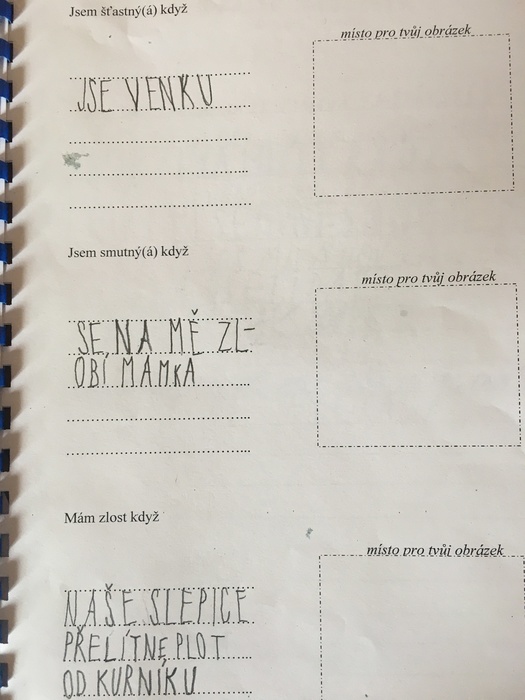 Jsem šťastný(á) když
místo pro tvůj obrázek
JSE VENKU
Jsem smutný(á) když
místo pro tvůj obrázek
SE NA MĚ ZL-
OBÍ MAMKA
Mám zlost když
místo pro tvůj obrázek
NAŠE SLEPICE
PŘELÍTNE PLOT
OD KURNÍKU